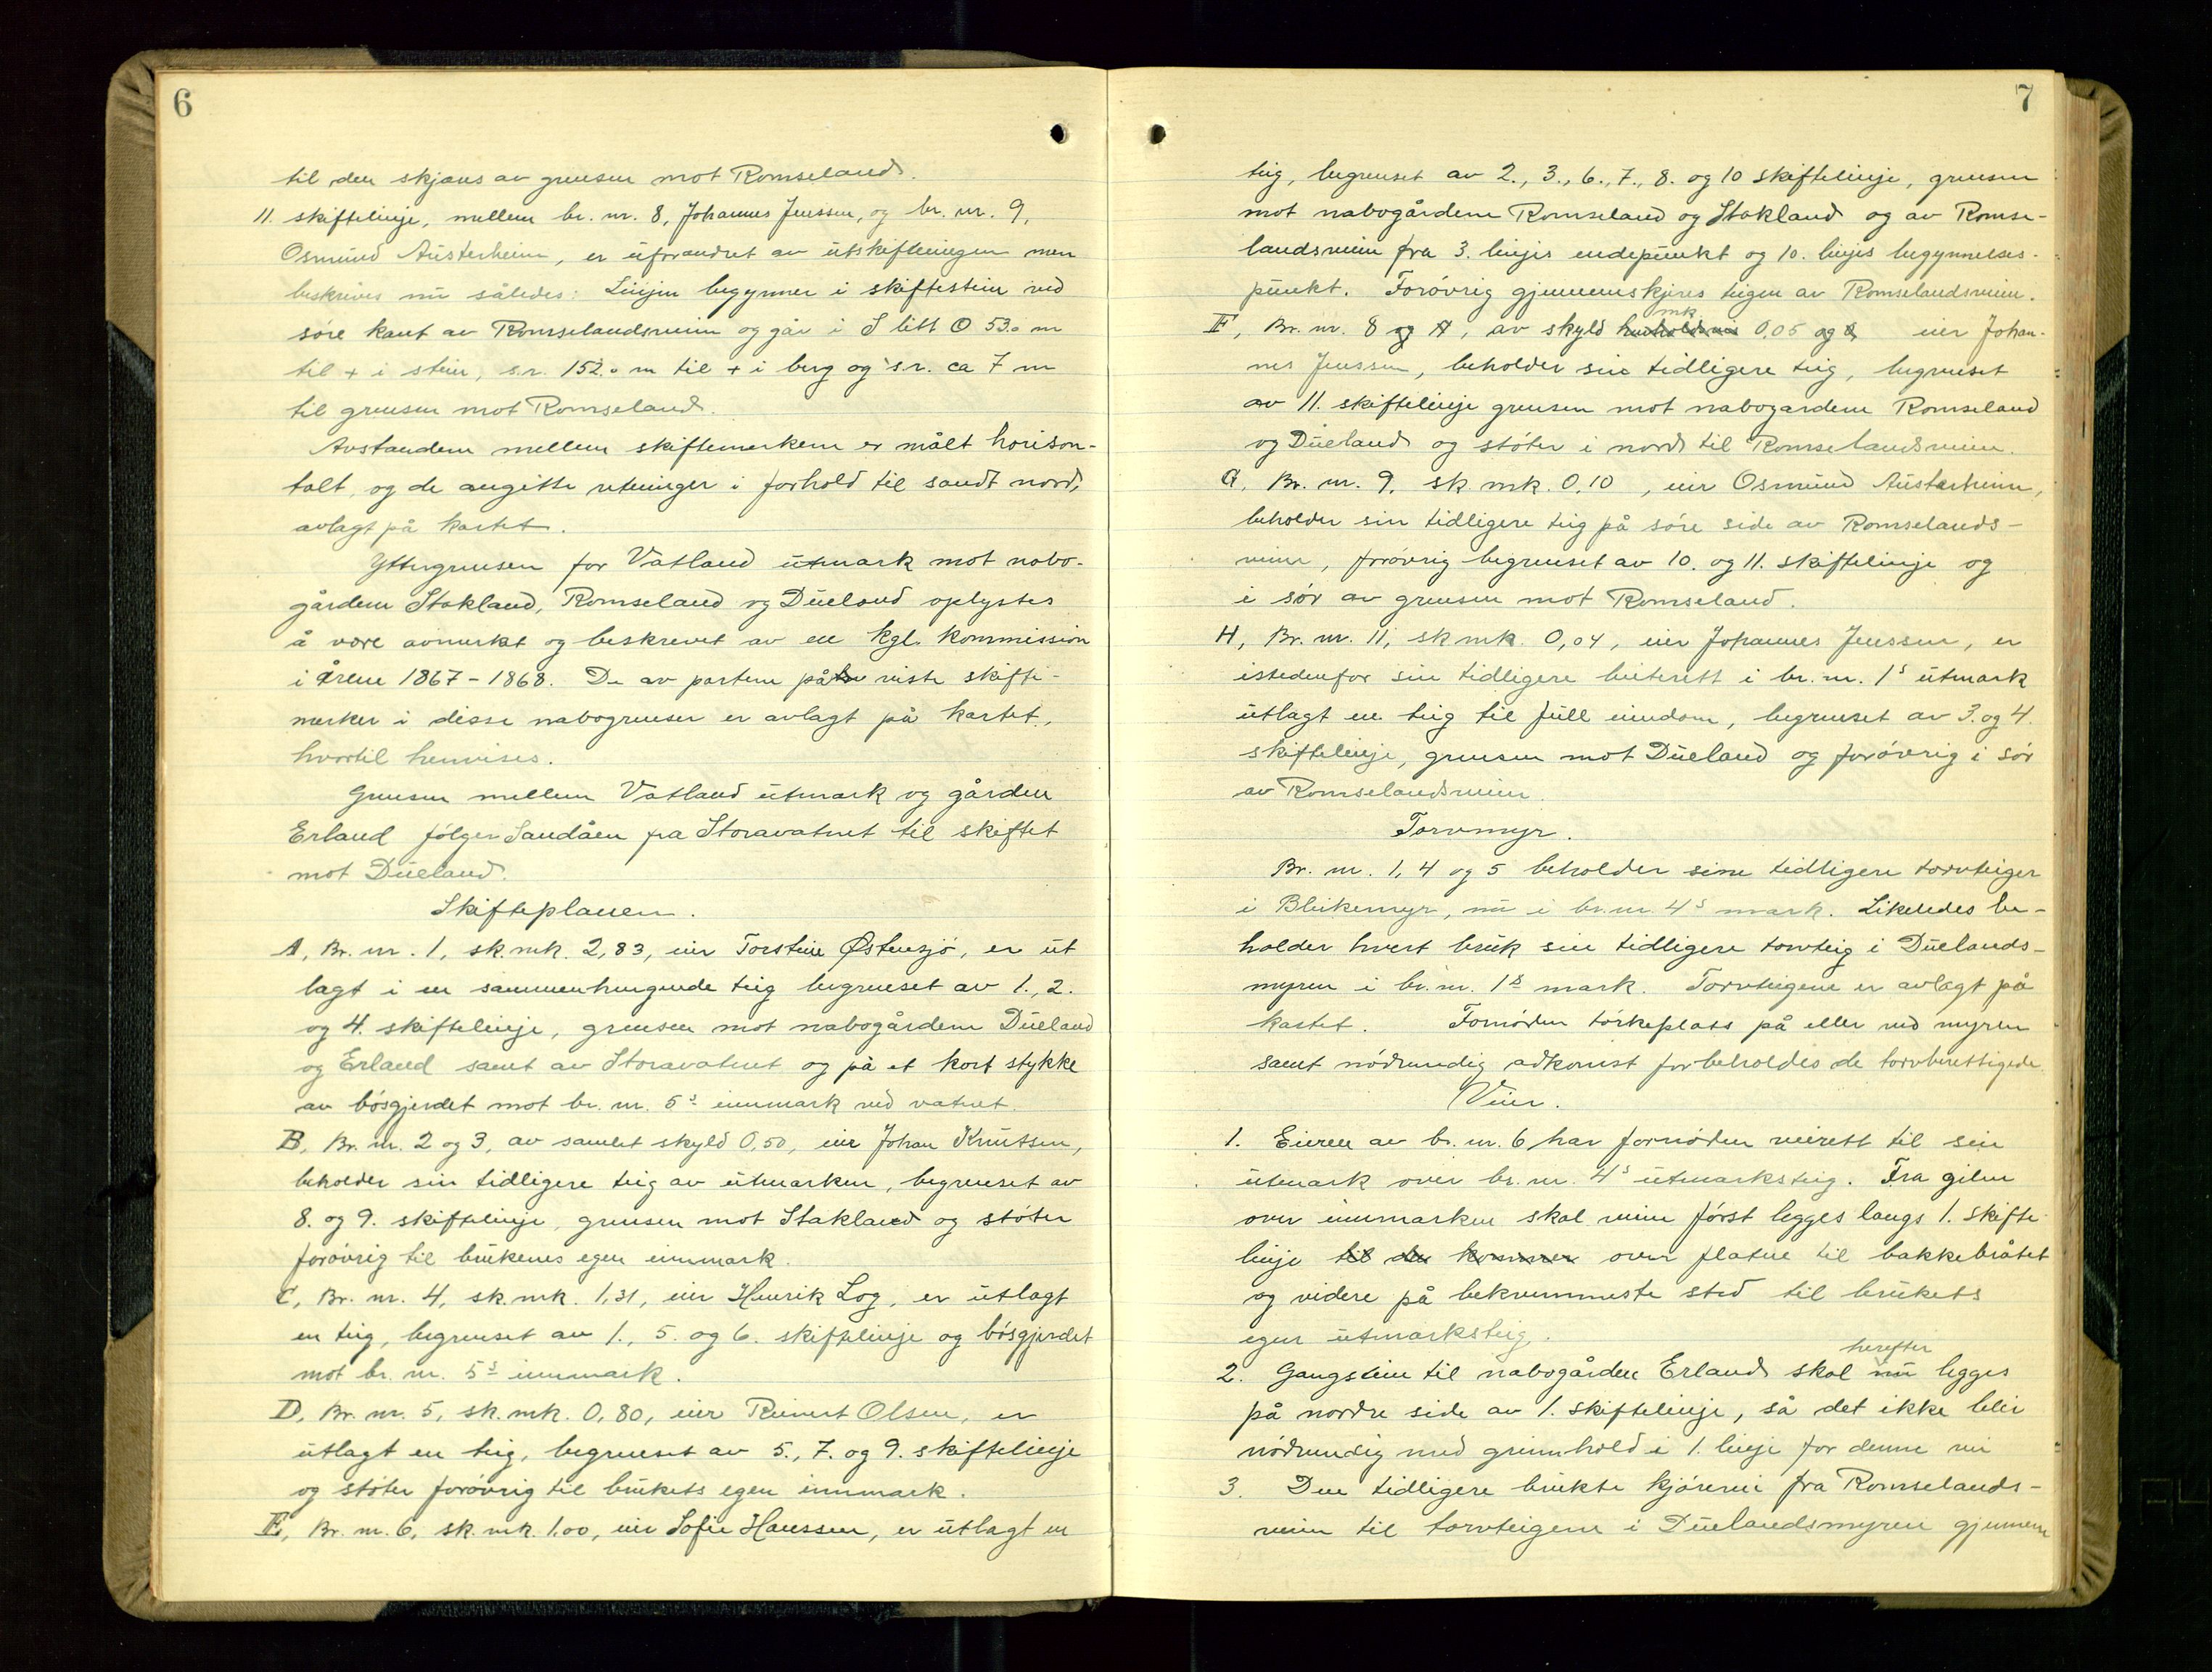 6
til den skjæres av grensen mot Romseland.
11. skiftelinje, mellem br. nr. 8, Johannes Jenssen, og br. nr. 9,
Osmund Austerheim, er uforandret av utskiftningen men
beskrives nu således: Linjen begynner i skiftestein ved
søre kant av Romselandsveien og går i S litt O 53.0 m
til + i stein, s.r. 152.0 m til + i berg og s.r. ca 7 m
til grensen mot Romseland.
Avstandene mellem skiftemerkene er målt horison-
talt, og de angitte retninger i forhold til sandt nord,
avlagt på kartet.
Yttergrensen for Vatland utmark mot nabo-
gårdene Stakland, Romseland og Dueland oplystes
å være avmerket og beskrevet av en kgl. kommission
i årene 1867-1868. De av partene påviste skifte-
merker i disse nabogrenser er avlagt på kartet,
hvortil henvises.
Grensen mellem Vatland utmark og gården
Erland følger Sandåen fra Storavatnet til skiftet
mot Dueland.
Skifteplanen.
A, Br. nr. 1, sk.mk. 2,83, eier Torstein Østensjø, er ut
lagt i en sammenhengende teig begrenset av 1., 2.
og 4. skiftelinje, grensen mot nabogårdene Dueland
og Erland samt av Storavatnet og på et kort stykke
av bøsgjerdet mot br. nr. 5s innmark ved vatnet.
B, Br. nr. 2 og 3, av samlet skyld 0,50, eier Johan Knutsen,
beholder sin tidligere teig av utmarken, begrenset av
8. og 9. skiftelinje, grensen mot Stakland og støter
forøvrig til brukenes egen innmark.
C, Br. nr. 4, sk.mk. 1,31, eier Henrik Log, er utlagt
en teig, begrenset av 1., 5. og 6. skiftelinje og bøsgjerdet
mot br. nr. 5s innmark.
D, Br. nr. 5, sk.mk. 0,80, eier Reinert Olsen, er
utlagt en teig, begrenset av 5., 7. og 9. skiftelinje
og støter forøvrig til brukets egen innmark.
E, Br. nr. 6, sk.mk. 1,00, eier Sofie Hanssen, er utlagt en
7
teig, begrenset av 2., 3., 6., 7., 8. og 10 skiftelinje, grensen
mot nabogårdene Romseland og Stakland og av Romse-
landsveien fra 3. linjes endepunkt og 10. linjes begynnelses-
punkt. Forøvrig gjennemskjæres teigen av Romselandsveien.
mk
F, Br. nr. 8 og A, av skyld 0,05 og eier Johan-
nes Jenssen, beholder sin tidligere teig, begrenset
av 11. skiftelinje grensen mot nabogardene Romseland
og Dueland og støter i nord til Romselandsveien.
G, Br. nr. 9, sk mk. 0,10, eier Osmund Austerheim,
beholder sin tidligere teig på søre side av Romselands-
veien, forøvrig begrenset av 10. og 11. skiftelinje og
i sør av grensen mot Romseland.
H, Br. nr. 11, sk mk. 0,04, eier Johannes Jenssen, er
istedenfor sin tidligere beiterett i br. nr. 1s utmark
utlagt en teig til full eiendom, begrenset av 3. og 4.
skiftelinje, grensen mot Dueland og forøvrig i sør
av Romselandsveien.
Torvmyr.
Br. nr. 1, 4 og 5 beholder sine tidligere torvteiger
i Bleikemyr, nu i br. nr. 4s mark. Likeledes be-
holder hvert bruk sin tidligere torvteig i Duelands-
myren i br. nr. 1s mark. Torvteigene er avlagt på
kartet. Fornøden tørkeplass på eller ved myren
samt nødvendig adkomst forbeholdes de torvberettigede
Veier.
1. Eieren av br. nr. 6 har fornøden veirett til sin
utmark over br. nr. 4s utmarksteig. Fra gilen
over innmarken skal veien først legges langs 1. skifte-
linje til den kommer over flatene til bakkebråtet
og videre på bekvemmeste sted til brukets
egen utmarksteig.
herefter
2. Gangsteien til nabogården Erland skal nu legges
på nordre side av 1. skiftelinje, så det ikke blir
nødvendig med grinnhold i 1. linje for denne vei
3. Den tidligere brukte kjørevei fra Romselands-
veien til torvteigene i Duelandsmyren gjennem